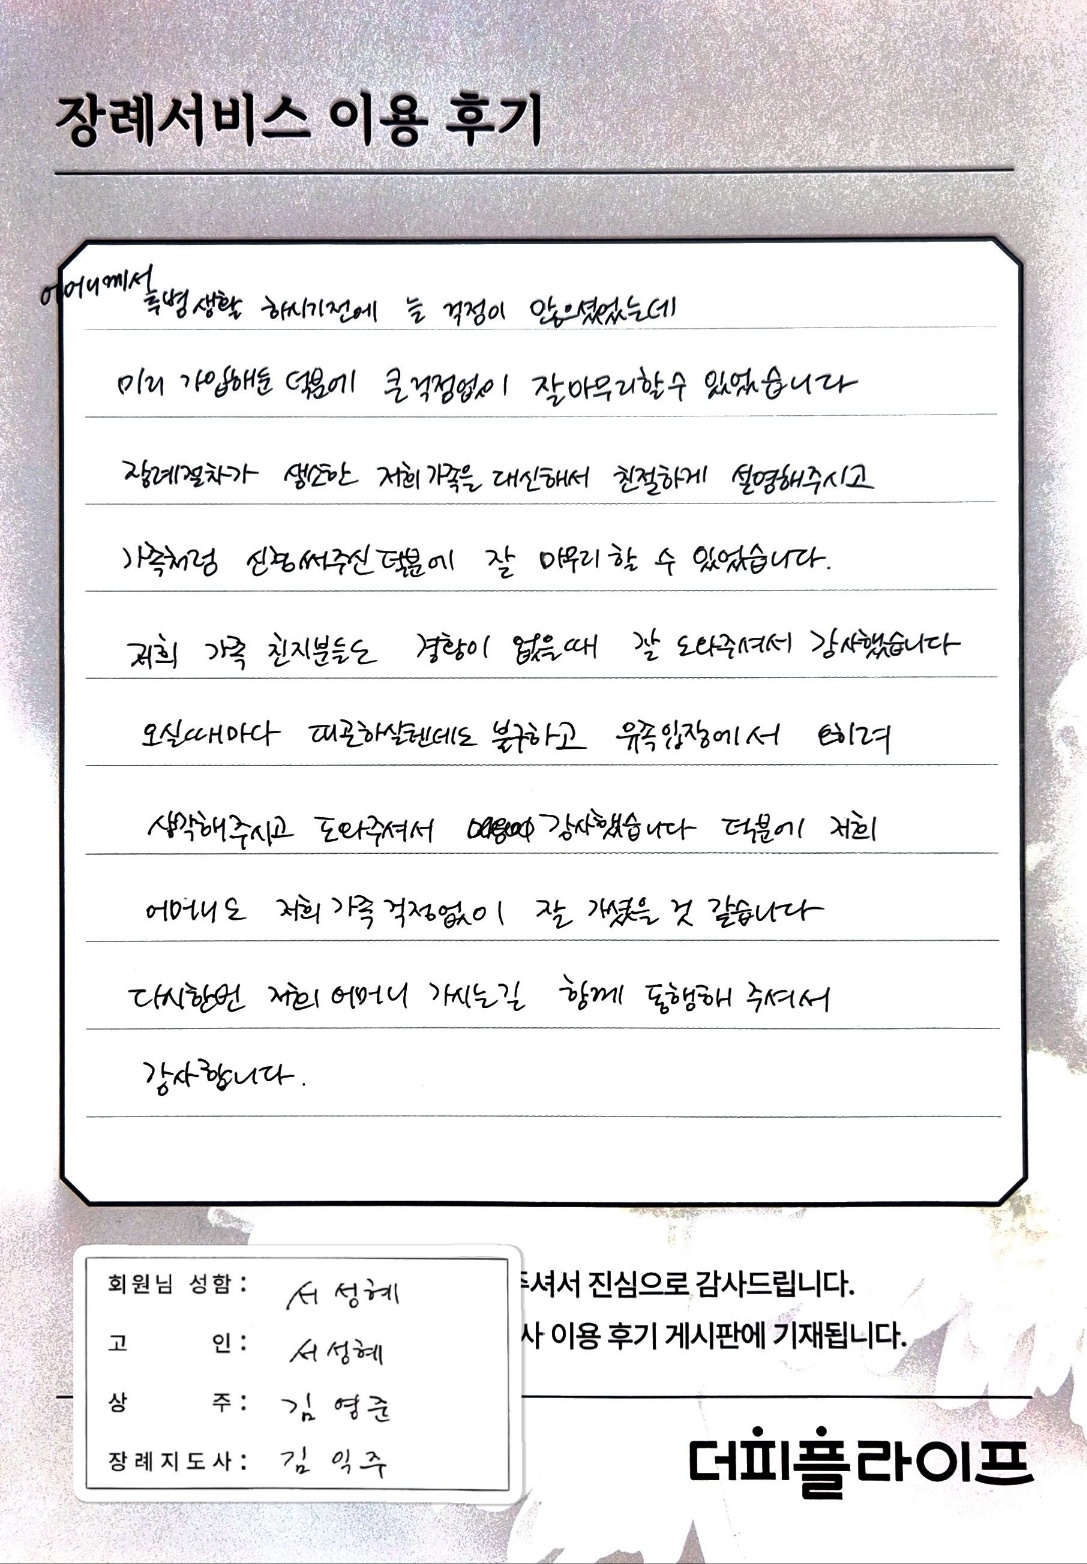 장례서비스 이용 후기
어머니께서
투병생활 하시기전에 늘 걱정이 많으셨었는데
미리 가입해둔 덕분에 큰걱정없이 잘마무리할수 있었습니다
장례절차가 생소한 저희가족을 대신해서 친절하게 설명해주시고
가족처럼 신경써주신덕분에 잘 마무리 할 수 있었습니다.
저희 가족 친지분들도 경황이 없을때 잘 도와주셔서 감사했습니다
오실때마다 피곤하실텐데도 불구하고 유족입장에서
생각해주시고 도와주셔서 감사했습니다 덕분에 저희
어머니도 저희가족 걱정없이 잘 가셨을 것 같습니다
다시한번 저희 어머니 가시는길 함께 동행해 주셔서
감사합니다.
회원님 성함: 서성혜
고 인: 서성혜
상 주: 김영준
장례지도사: 김익주
주셔서 진심으로 감사드립니다.
사 이용 후기 게시판에 기재됩니다.
더피플라이프